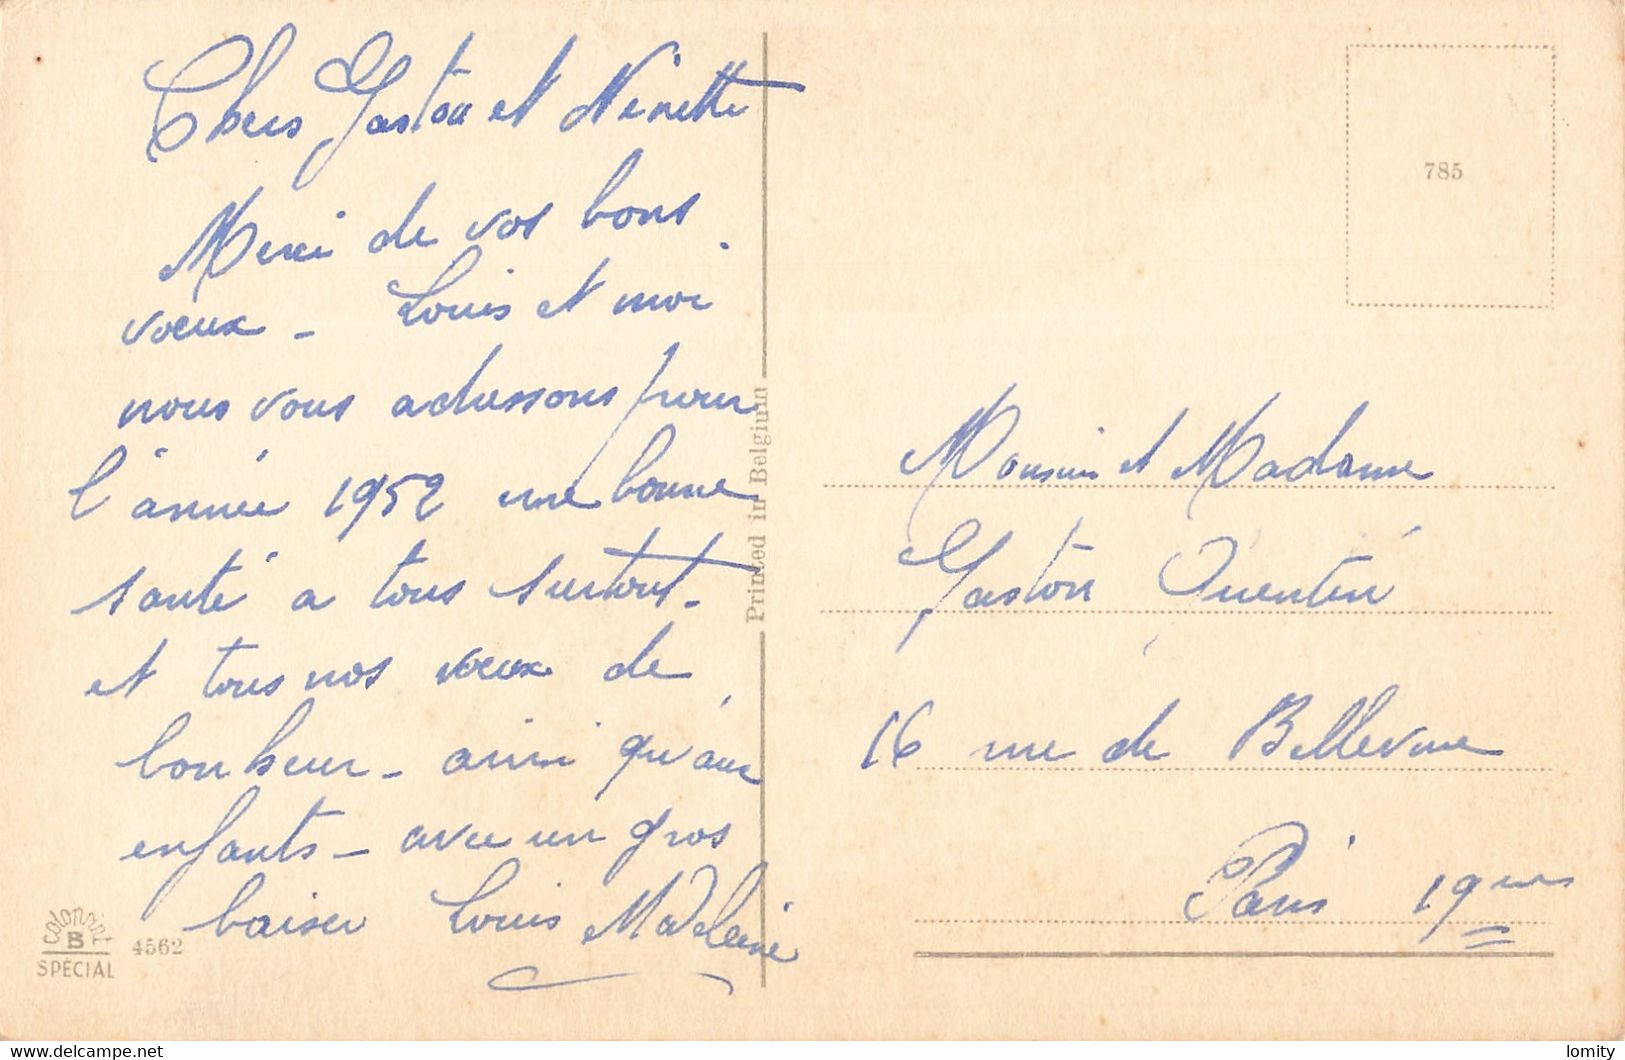 Chers Gaston et Ninette
Merci de vos bons
voeux - Louis et moi
nous vous adressons pour
l'année 1952 une bonne
santé a tous surtout -
et tous nos voeux de
bonheur - ainsi qu'aux
enfants - avec un gros
baiser Louis Madeleine
colorprint
B
SPECIAL
4562
Printed in Belgium
785
Monsieur et Madame
Gaston Quentin
16 rue de Bellevue
Paris 19
www.delcampe.net
lomity